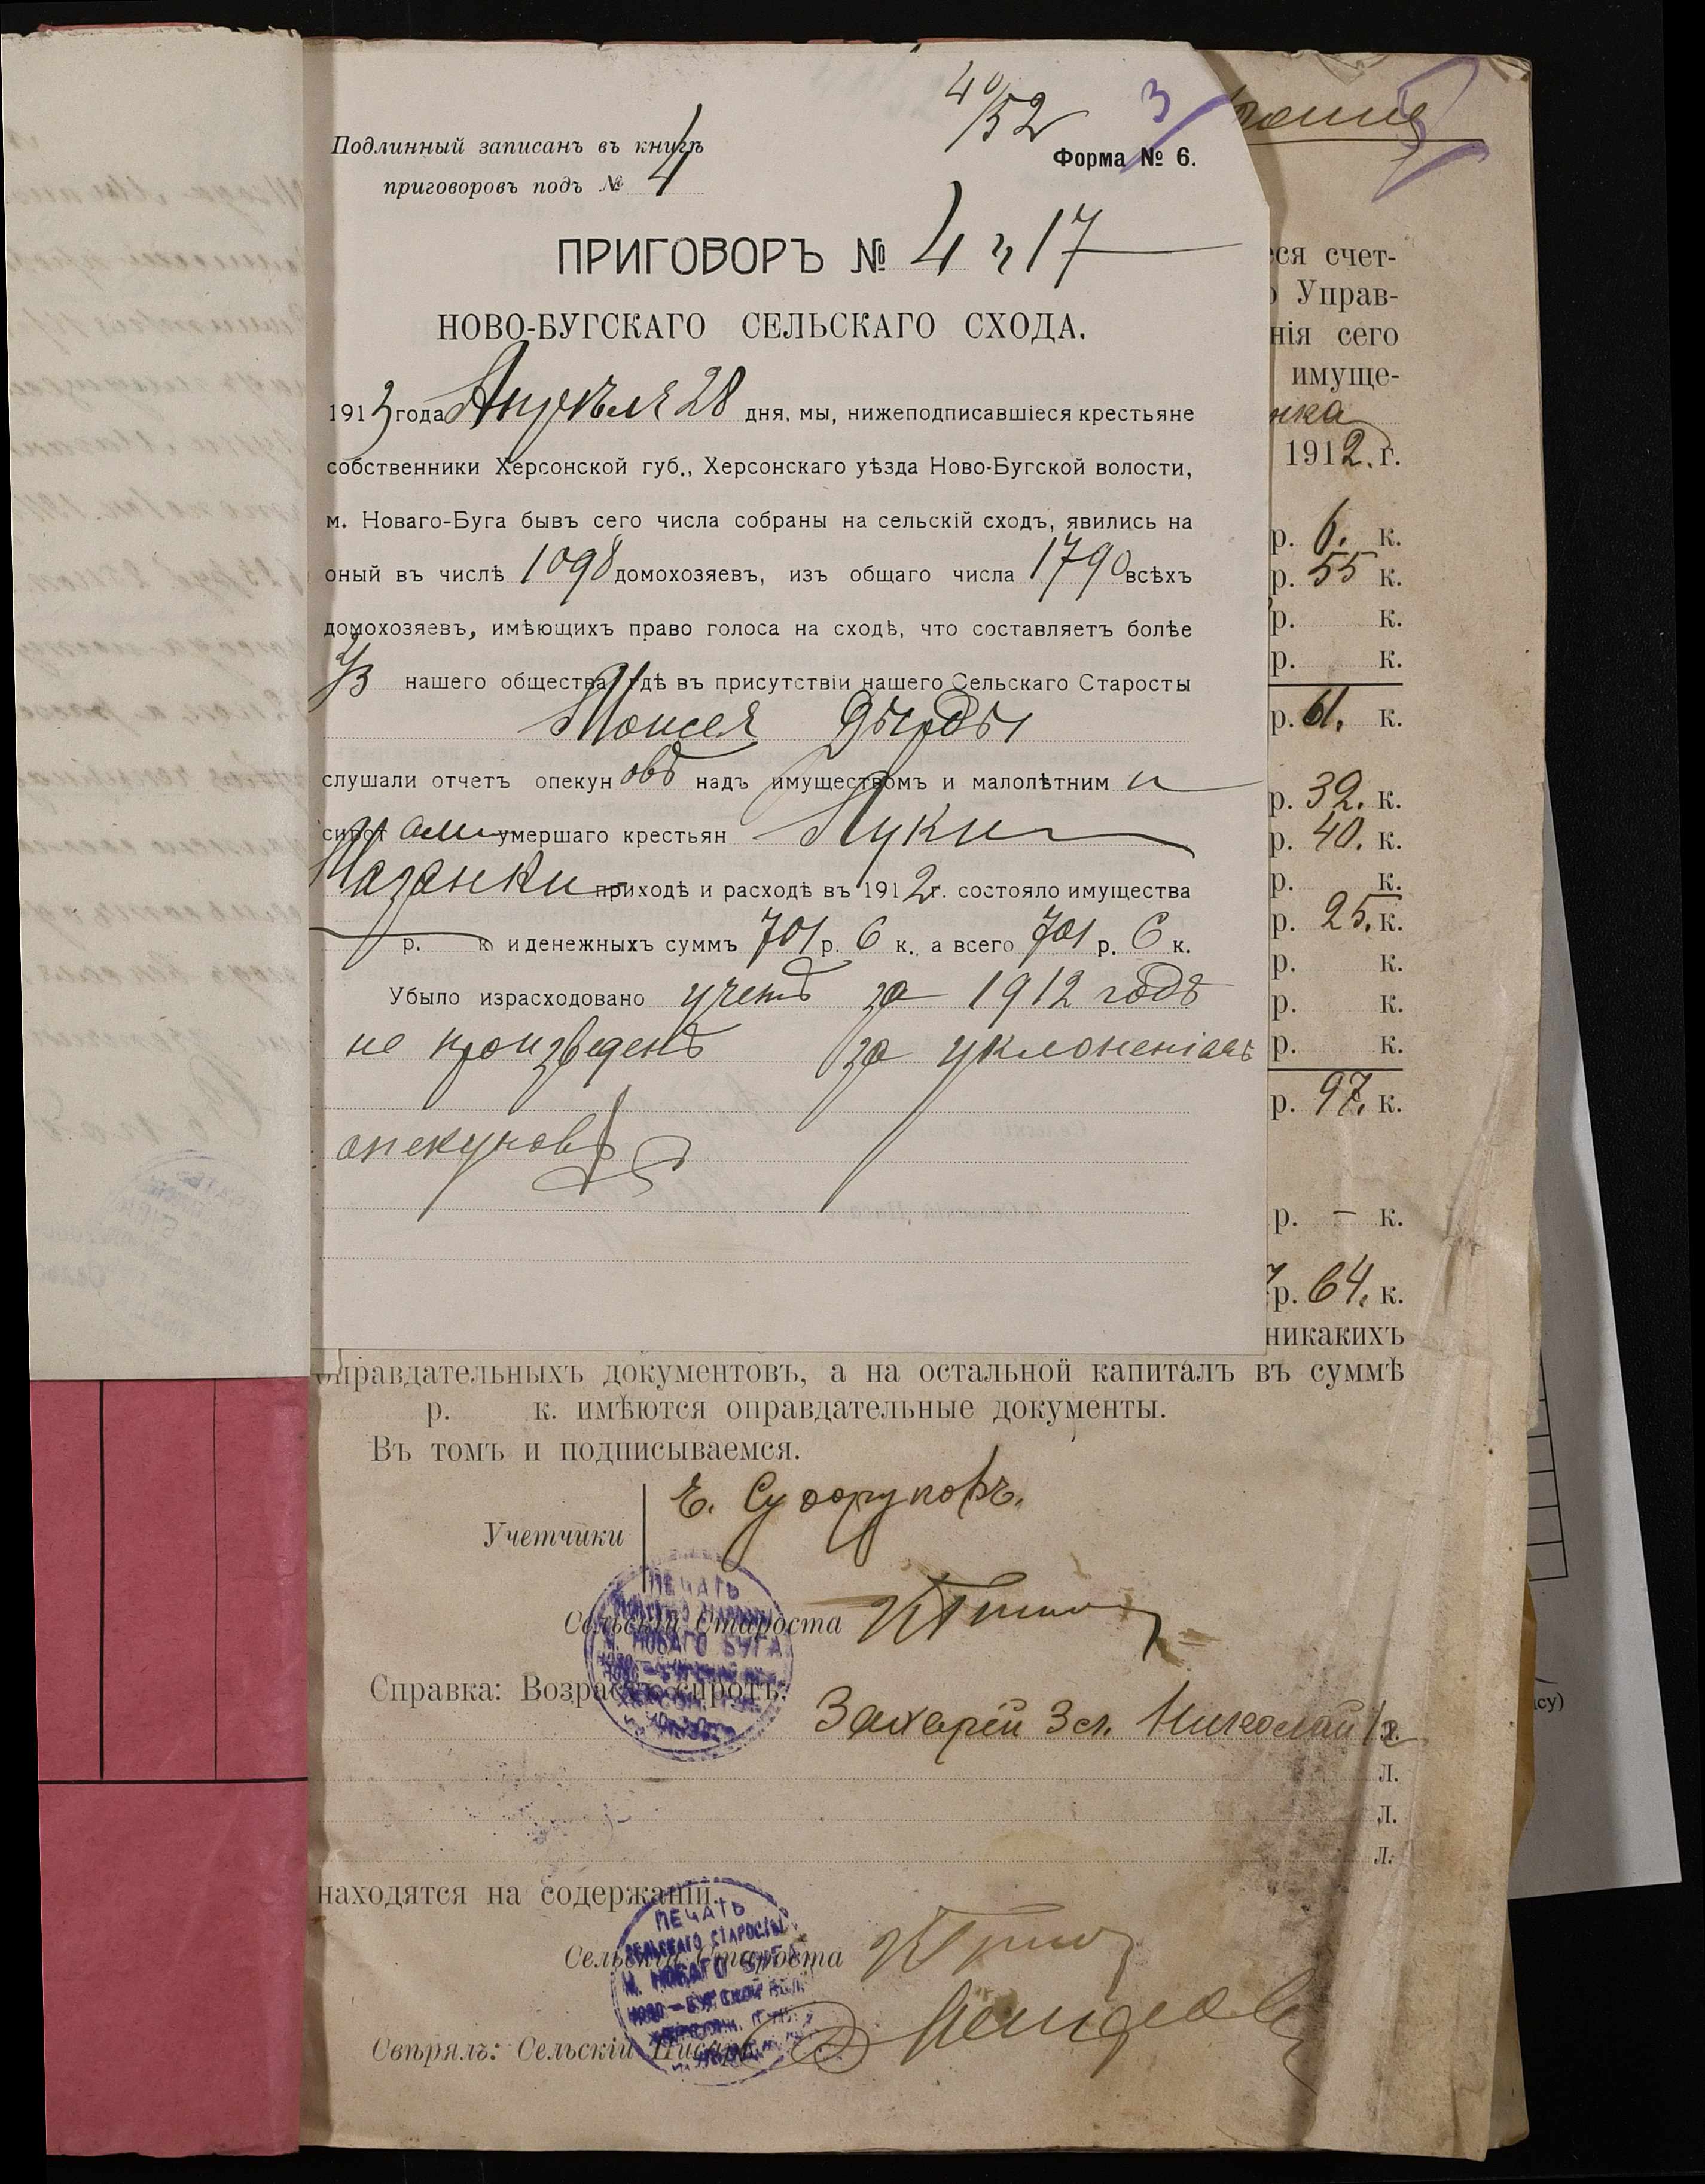 40/52 3
Подлинный записанъ въ книгѣ
приговоровъ подъ № 4
Форма № 6.
ПРИГОВОРЪ № 4 ч 17
НОВО-БУГСКАГО СЕЛЬСКАГО СХОДА.
1913 года Апрѣля 28 дня, мы, нижеподписавшіеся крестьяне
собственники Херсонской губ., Херсонскаго уѣзда Ново-Бугской волости,
м. Новаго-Буга бывъ сего числа собраны на сельскій сходъ, явились на
оный въ числѣ 1098 домохозяевъ, изъ общаго числа 1790 всѣхъ
домохозяевъ, имѣющихъ право голоса на сходѣ, что составляетъ болѣе
2/3 нашего общества, гдѣ въ присутствіи нашего Сельскаго Старосты
Моисея Дырды
слушали отчетъ опекуновъ надъ имуществомъ и малолѣтним и
сиротами умершаго крестьян Луки
Мазанки приходѣ и расходѣ въ 1912 г. состояло имущества
р. к. и денежныхъ суммъ 701 р. 6 к., а всего 701 р. 6 к.
Убыло израсходовано учетъ за 1912 годъ
не произведенъ за уклоненіемъ
опекуновъ
ся счет-
Управ-
нія сего
имуще-
нка
1912 г.
р. 6. к.
р. 55 к.
р. к.
р. к.
р. 61. к.
р. 32. к.
р. 40. к.
р. к.
р. 25. к.
р. к.
р. к.
р. к.
р. 97. к.
р. – к.
р. 64. к.
никакихъ
оправдательныхъ документовъ, а на остальной капиталъ въ суммѣ
р. к. имѣются оправдательные документы.
Въ томъ и подписываемся.
Учетчики
ПЕЧАТЬ
Сельскій Староста
М. НОВАГО БУГА
Справка: Возрастъ сиротъ:
Захарій 3 л. Николай 1 г.
л.
л.
л.
находятся на содержаніи.
ПЕЧАТЬ
СЕЛЬСКАГО СТАРОСТЫ
Сельскій Староста
М. НОВАГО БУГА
НОВО-БУГСКОЙ ВОЛ.
Свѣрялъ: Сельскій Писарь